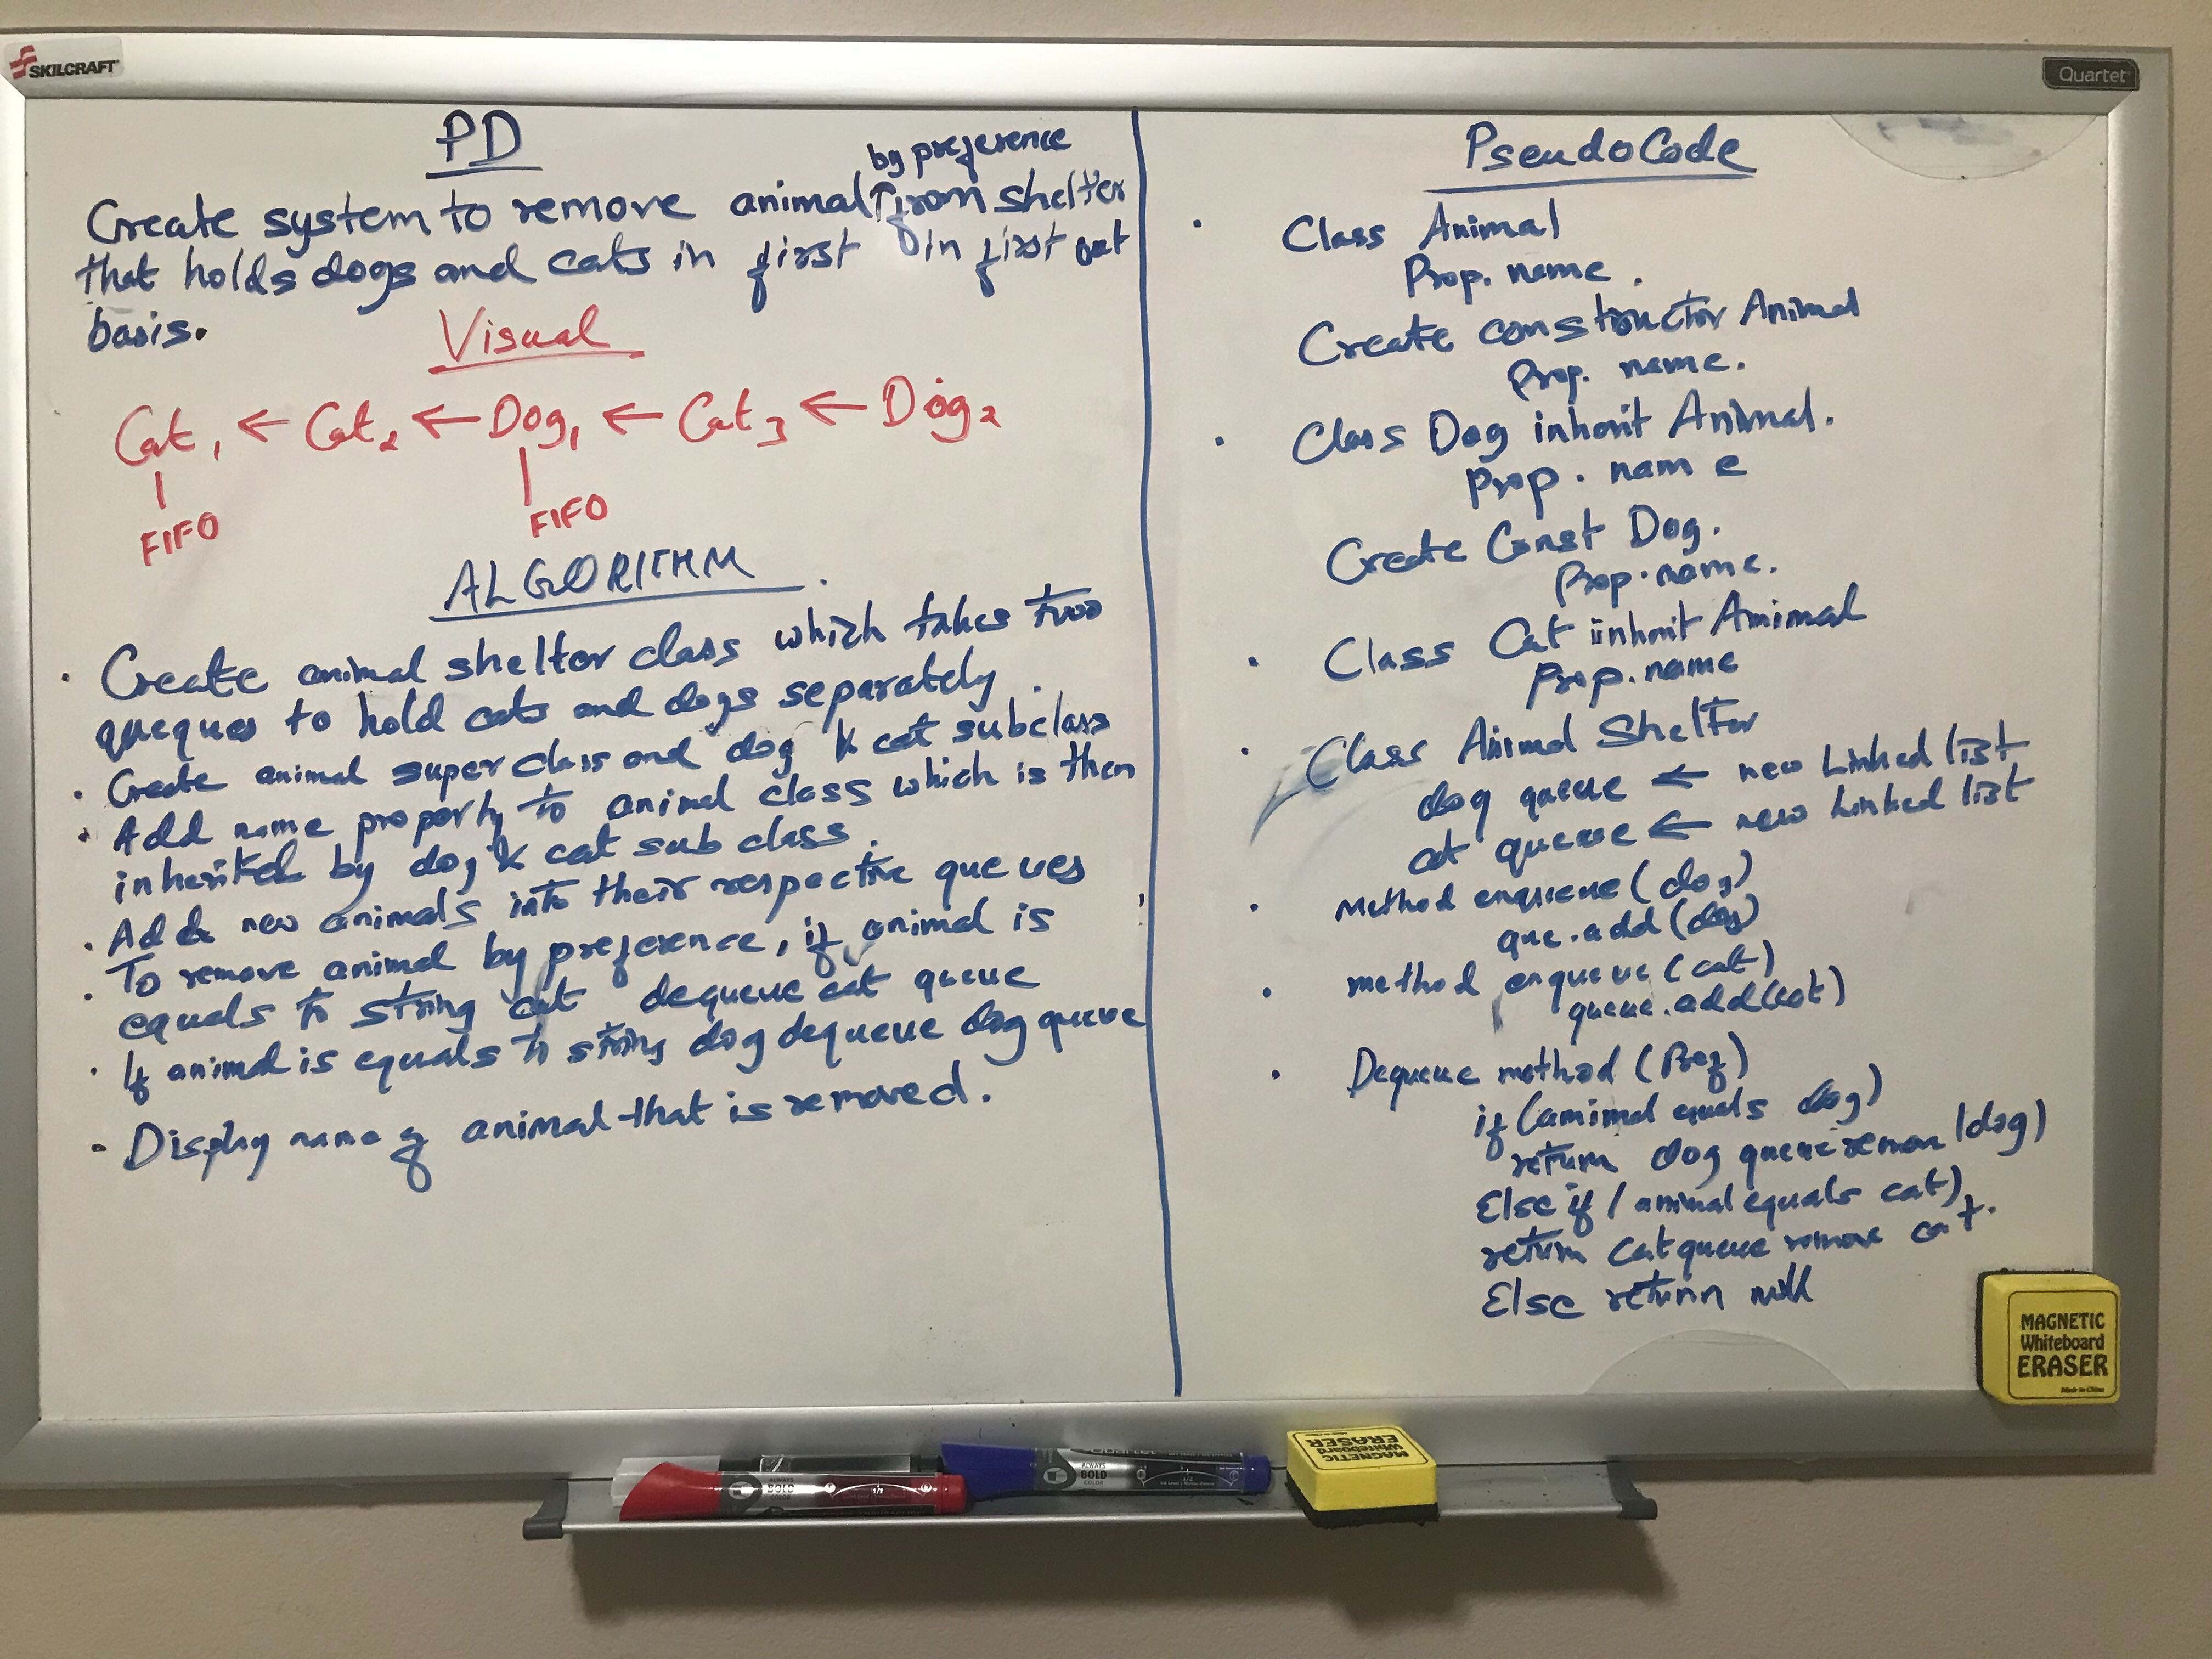 SKILCRAFT
Quartet
PD
by preference
Create system to remove animal ↑ from shelter
that holds dogs and cats in first in first out
basis.
Visual
Cat1 ← Cat2 ← Dog1 ← Cat3 ← Dog2
FIFO
FIFO
ALGORITHM
• Create animal shelter class which takes two
queques to hold cats and dogs separately.
• Create animal super class and dog & cat subclass
• Add name property to animal class which is then
inherited by dog & cat sub class.
• Add new animals into their respective queues
• To remove animal by preference, if animal is
equals to string cat dequeue cat queue
• If animal is equals to string dog dequeue dog queue
- Display name of animal that is removed.
PseudoCode
• Class Animal
Prop. name.
Create constructor Animal
Prop. name.
• Class Dog inherit Animal.
Prop. name
Create Const Dog.
Prop. name.
• Class Cat inherit Animal
Prop. name
• Class Animal Shelter
dog queue ← new Linked list
cat queue ← new Linked list
• Method enqueue (dog)
que.add (dog)
• method enqueue (cat)
queue.add(cat)
• Dequeue method (Pref)
if (animal equals dog)
return dog queue remove (dog)
Else if (animal equals cat)
return Cat queue remove cat.
Else return null
MAGNETIC
Whiteboard
ERASER
Made in China
MAGNETIC
Whiteboard
ERASER
ALWAYS
BOLD
COLOR
ALWAYS
BOLD
COLOR